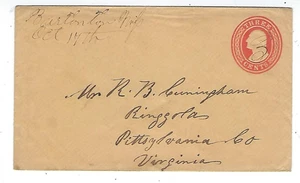 Oct 17th
THREE
CENTS
Mr R. B. Cuningham
Ringgolds
Pittsylvania Co
Virginia